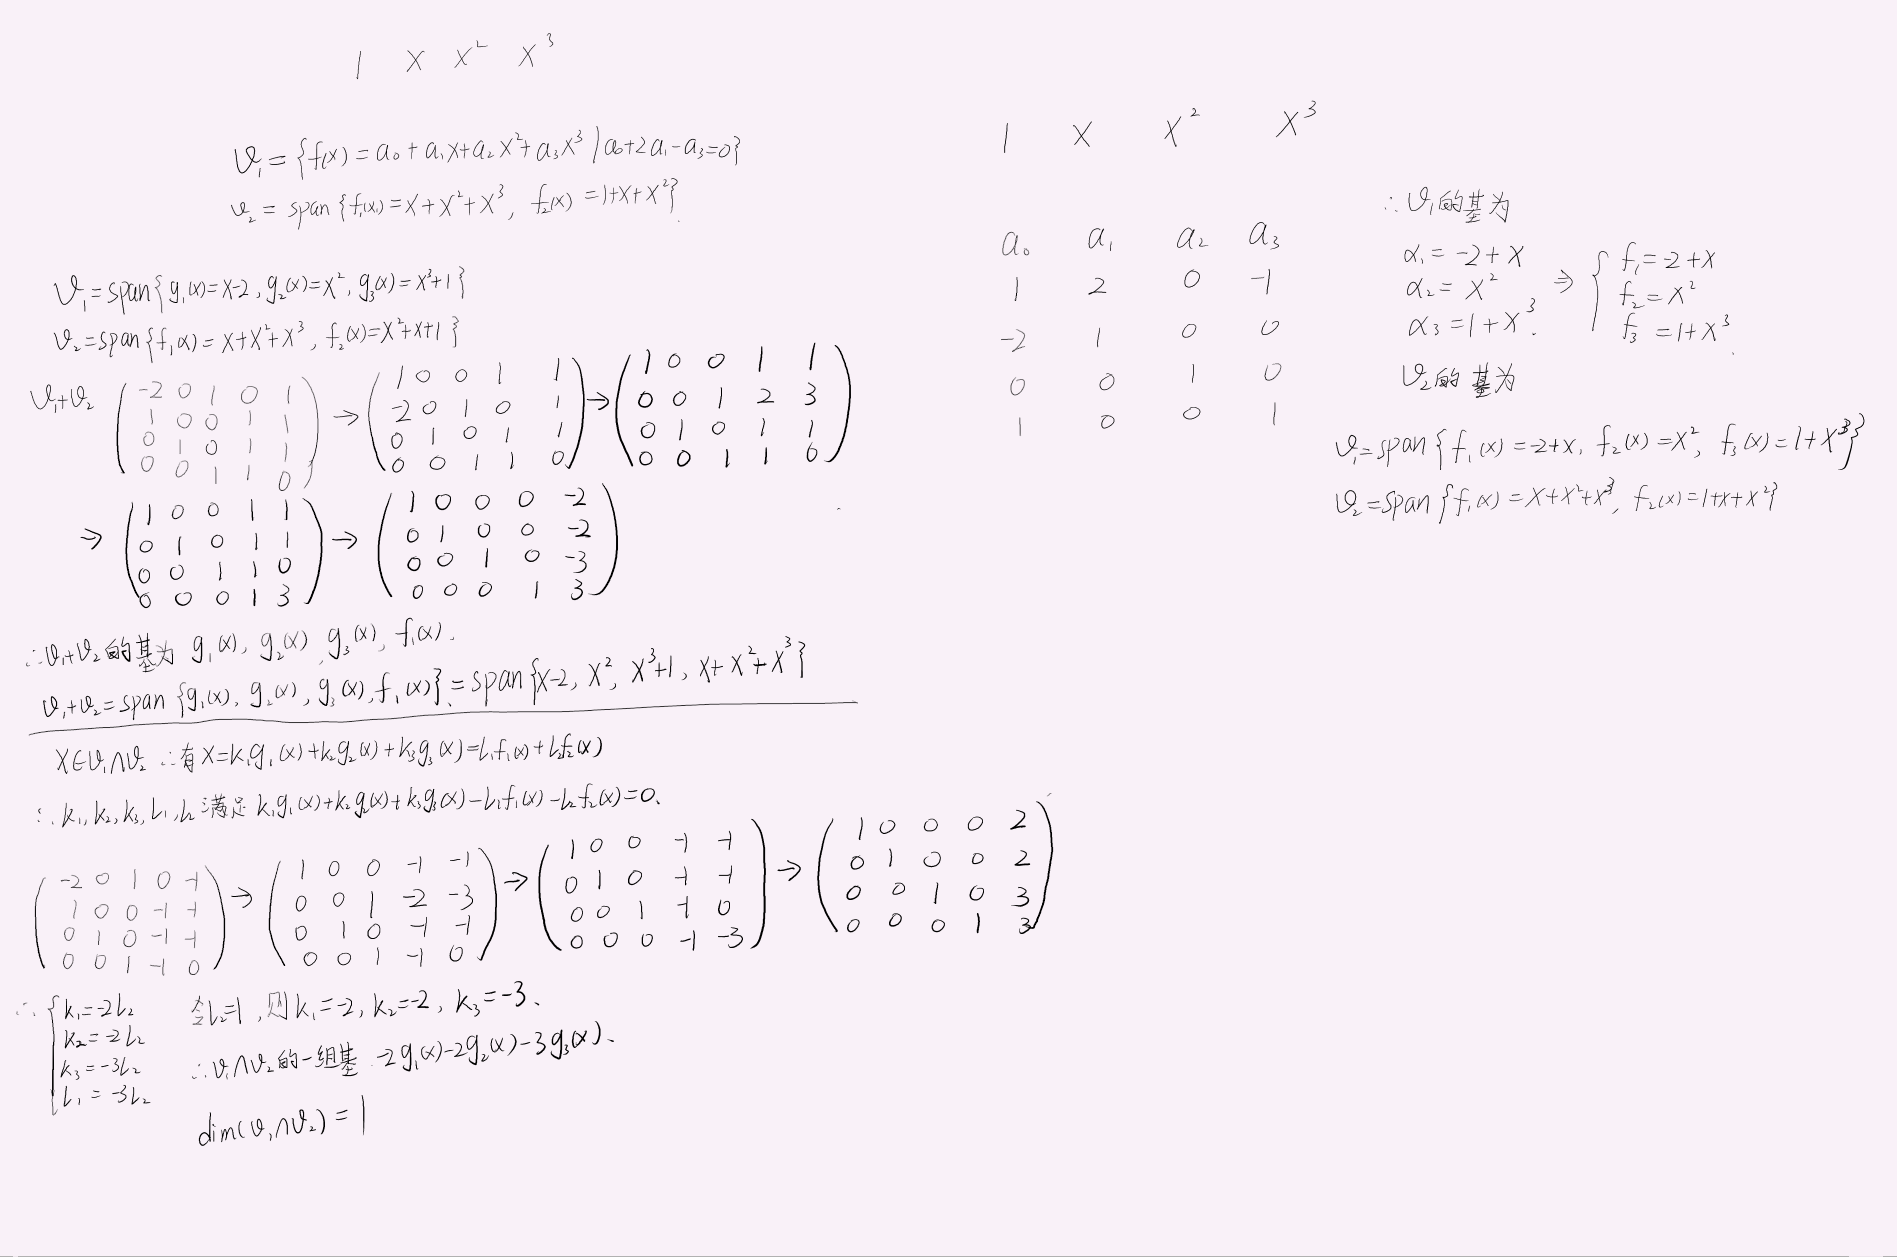 1 x x² x³
V₁={f(x)=a₀+a₁x+a₂x²+a₃x³|a₀+2a₁-a₃=0}
V₂=span{f₁(x)=x+x²+x³, f₂(x)=1+x+x²}.
V₁=span{g₁(x)=x-2, g₂(x)=x², g₃(x)=x³+1}
V₂=span{f₁(x)=x+x²+x³, f₂(x)=x²+x+1}
V₁+V₂ (-2 0 1 0 1 → (1 0 0 1 1 → (1 0 0 1 1
1 0 0 1 1 -2 0 1 0 1 0 0 1 2 3
0 1 0 1 1 0 1 0 1 1 0 1 0 1 1
0 0 1 1 0) 0 0 1 1 0) 0 0 1 1 0)
⇒ (1 0 0 1 1 → (1 0 0 0 -2
0 1 0 1 1 0 1 0 0 -2
0 0 1 1 0 0 0 1 0 -3
0 0 0 1 3) 0 0 0 1 3)
∴V₁+V₂的基为 g₁(x), g₂(x), g₃(x), f₁(x).
V₁+V₂=span{g₁(x), g₂(x), g₃(x), f₁(x)}=span{x-2, x², x³+1, x+x²+x³}
X∈V₁∩V₂ ∴有X=k₁g₁(x)+k₂g₂(x)+k₃g₃(x)=L₁f₁(x)+L₂f₂(x)
∴k₁,k₂,k₃,L₁,L₂满足k₁g₁(x)+k₂g₂(x)+k₃g₃(x)-L₁f₁(x)-L₂f₂(x)=0.
(-2 0 1 0 -1 → (1 0 0 -1 -1 → (1 0 0 -1 -1 → (1 0 0 0 2
1 0 0 -1 -1 0 0 1 -2 -3 0 1 0 -1 -1 0 1 0 0 2
0 1 0 -1 -1 0 1 0 -1 -1 0 0 1 -1 0 0 0 1 0 3
0 0 1 -1 0) 0 0 1 -1 0) 0 0 0 -1 -3) 0 0 0 1 3)
∴{k₁=-2L₂ 令L₂=1,则k₁=-2, k₂=-2, k₃=-3.
k₂=-2L₂
k₃=-3L₂ ∴V₁∩V₂的一组基 -2g₁(x)-2g₂(x)-3g₃(x).
L₁=-3L₂
dim(V₁∩V₂)=1
1 x x² x³
a₀ a₁ a₂ a₃
1 2 0 -1
-2 1 0 0
0 0 1 0
1 0 0 1
∴V₁的基为
α₁=-2+x ⇒ {f₁=-2+x
α₂=x² f₂=x²
α₃=1+x³. f₃=1+x³.
V₂的基为
V₁=span{f₁(x)=-2+x, f₂(x)=x², f₃(x)=1+x³}
V₂=span{f₁(x)=x+x²+x³, f₂(x)=1+x+x²}